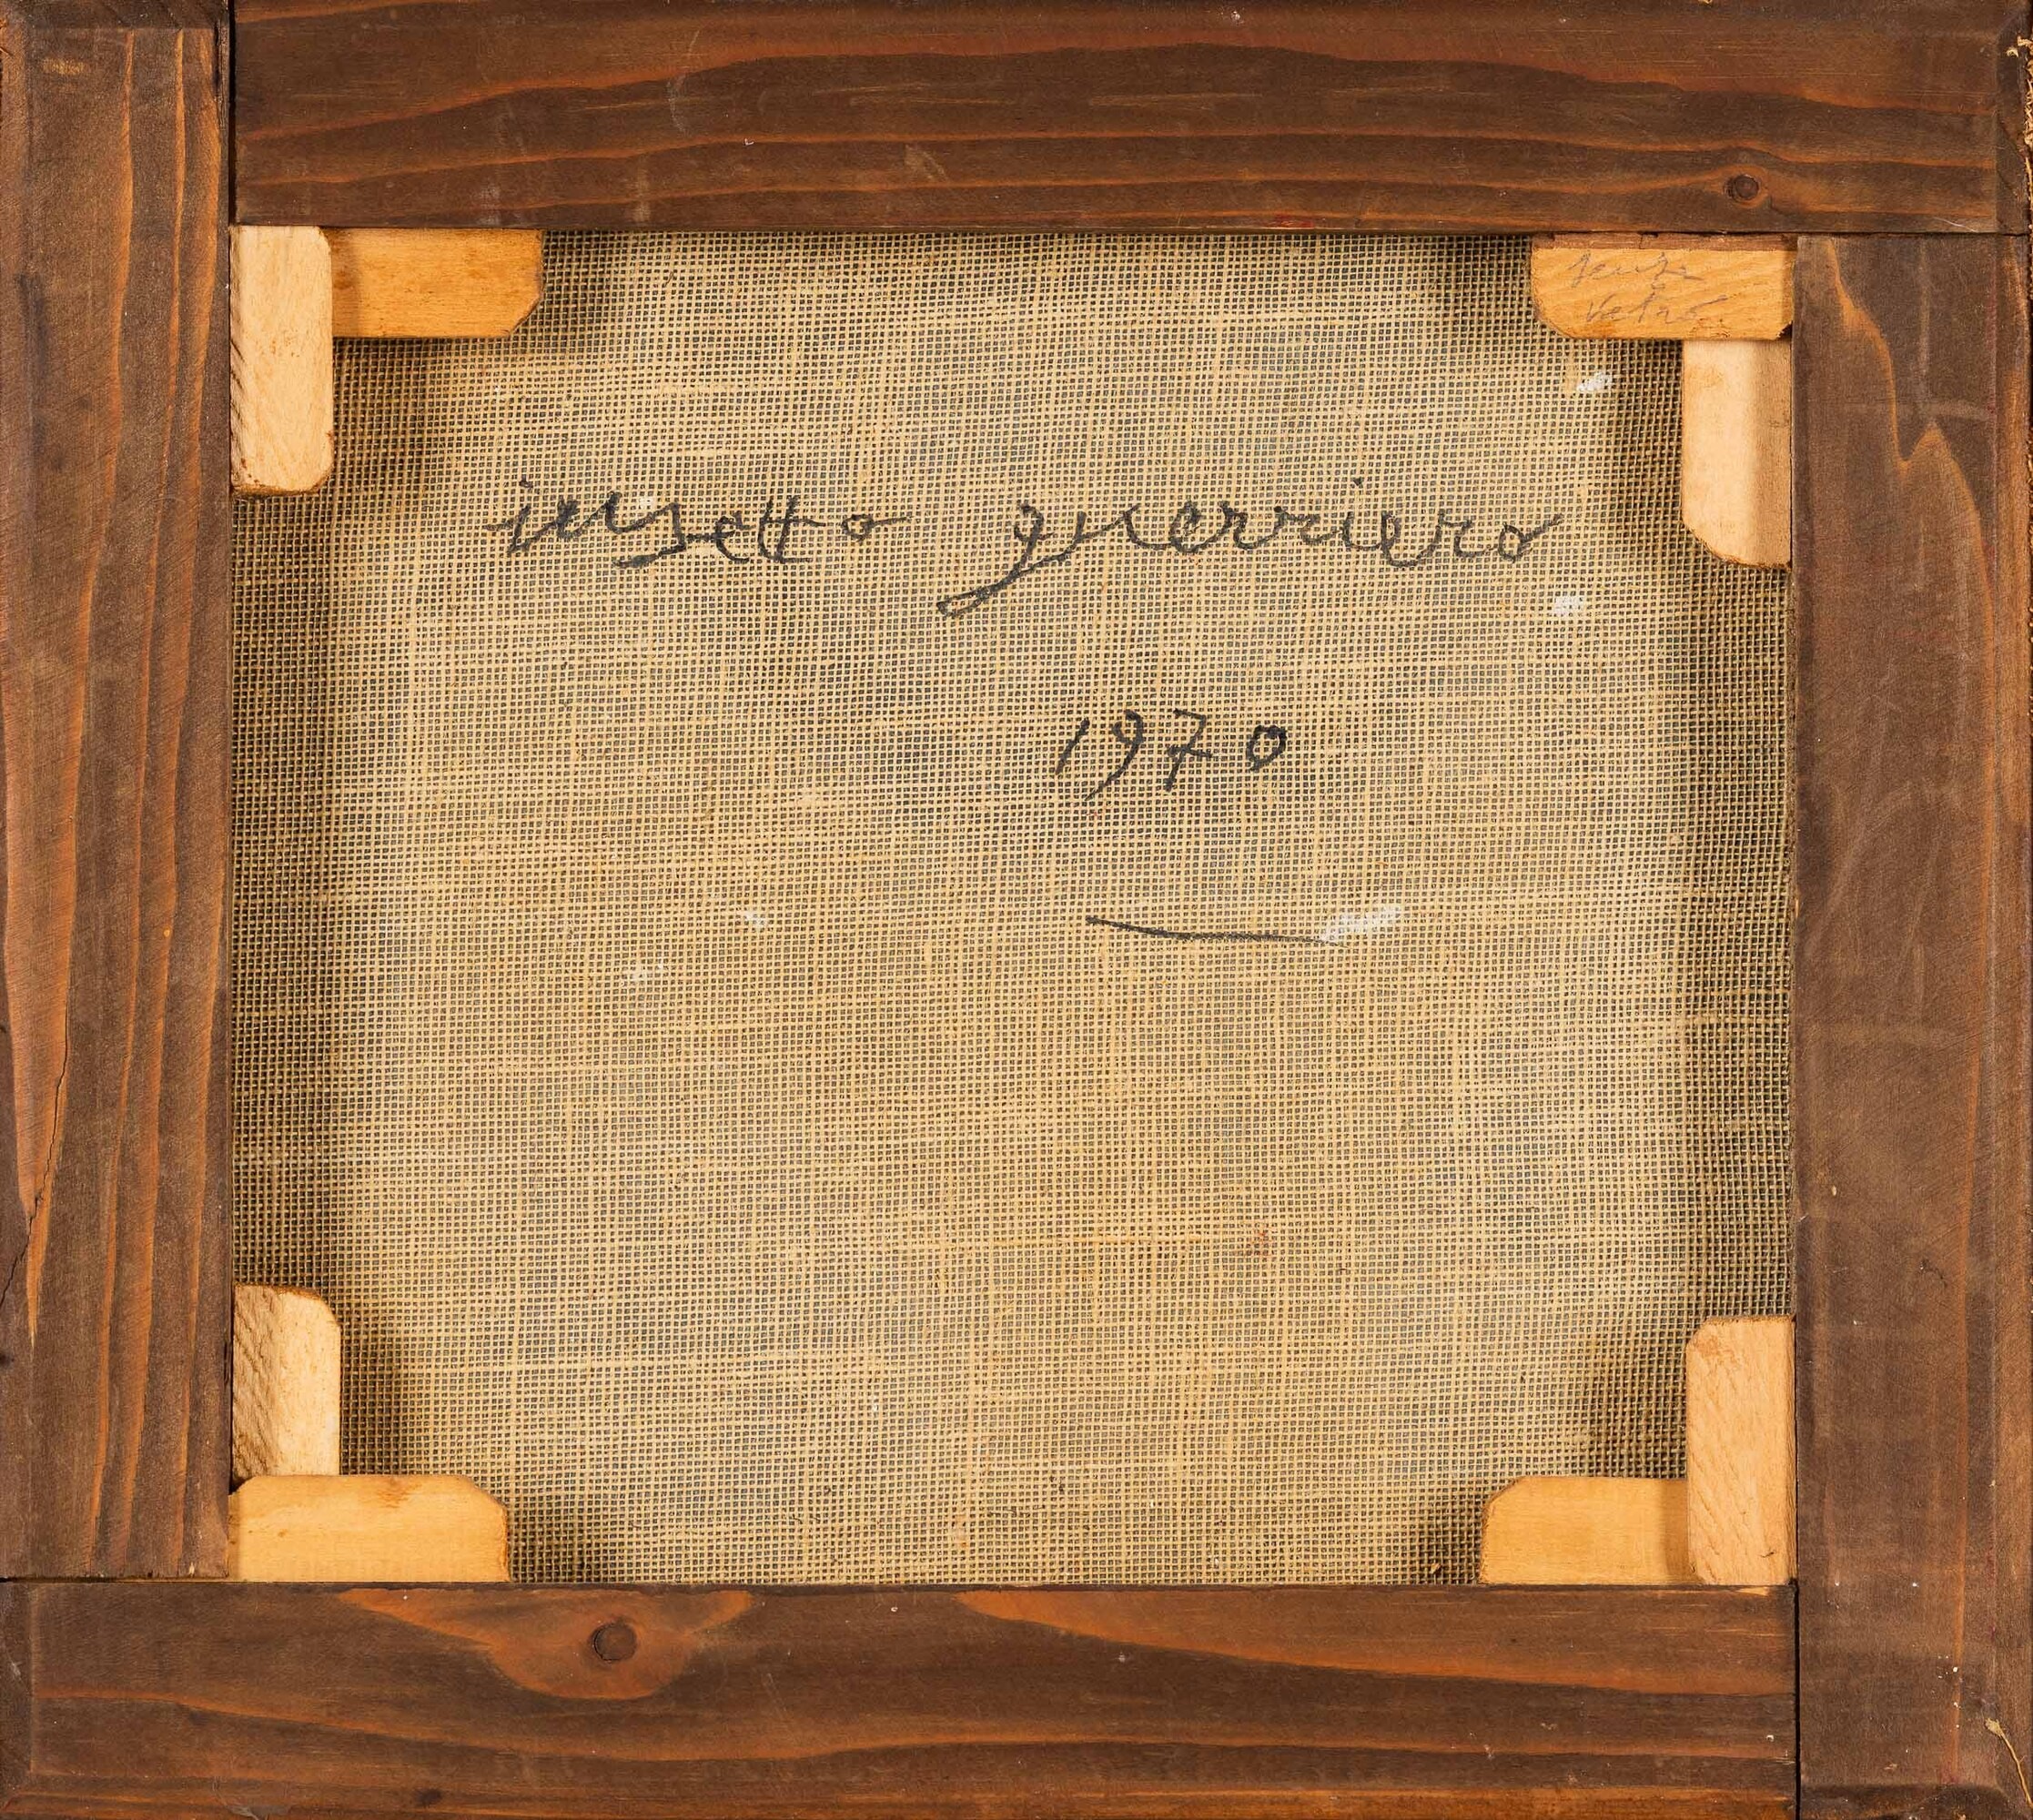 insetto guerriero
1970
senza
vetro.